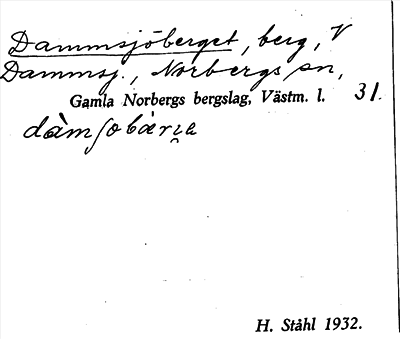 Dammsjöberget, berg, V
Dammsj., Norbergs sn,
Gamla Norbergs bergslag, Västm. l. 31.
dàmʃobærɪe
H. Ståhl 1932.